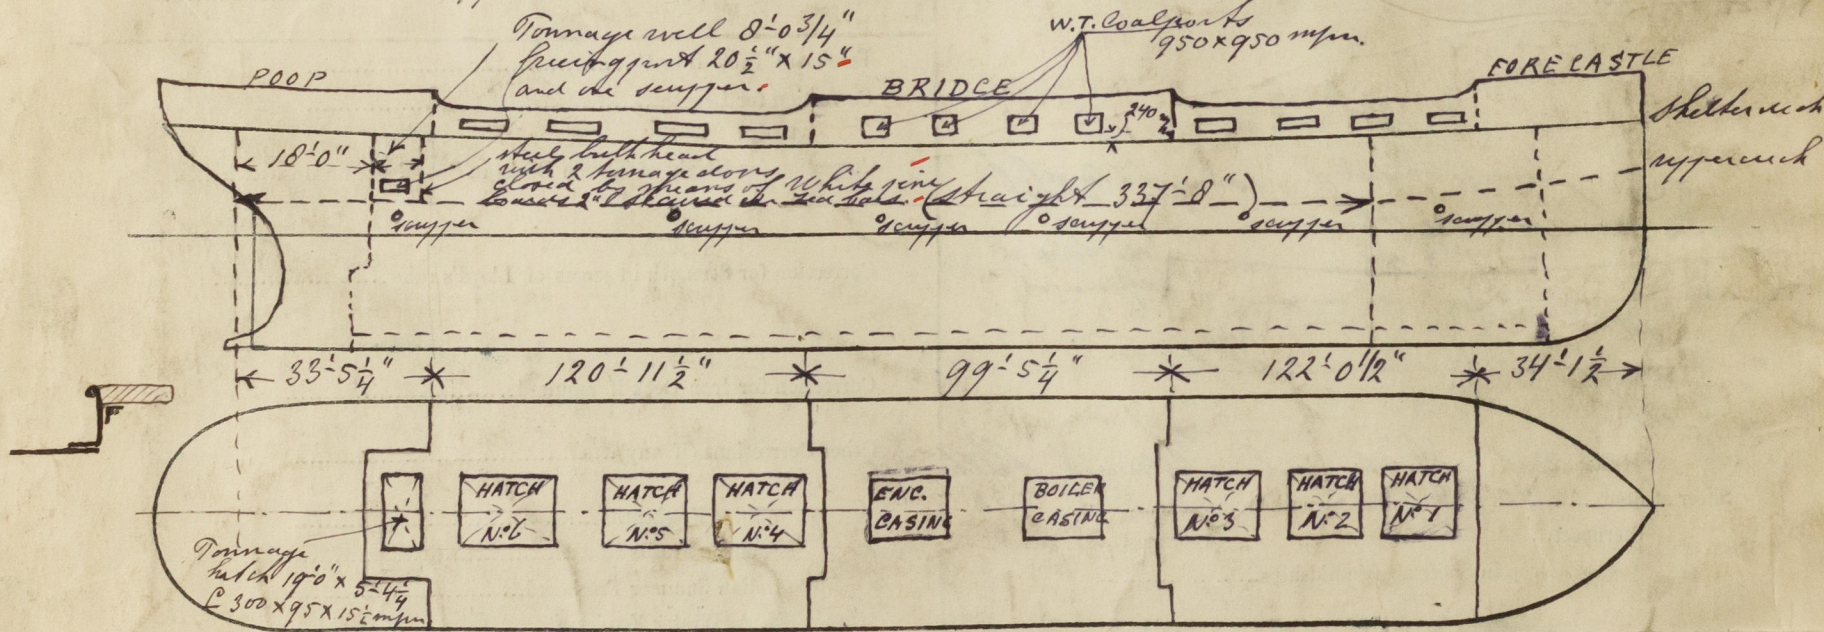 Tonnage well 8'-0 3/4"
freeing port 20 1/2" x 15"
and one scupper.
W.T. Coalports
950 x 950 m/m.
POOP
BRIDGE
FORECASTLE
shelterdeck
240
18'-0"
steel bulkhead
with 2 tonnage doors
closed by means of white pine
boards 2"
(straight 337'-8")
upperdeck
scupper
scupper
scupper
scupper
scupper
scupper
33'-5 1/4"
120'-11 1/2"
99'-5 1/4"
122'-0 1/2"
34'-1 1/2
HATCH
No 6
HATCH
No 5
HATCH
No 4
ENG.
CASING
BOILER
CASING
HATCH
No 3
HATCH
No 2
HATCH
No 1
Tonnage
hatch 19'0" x 5'-4 1/4
[ 300 x 95 x 15 1/2 m/m